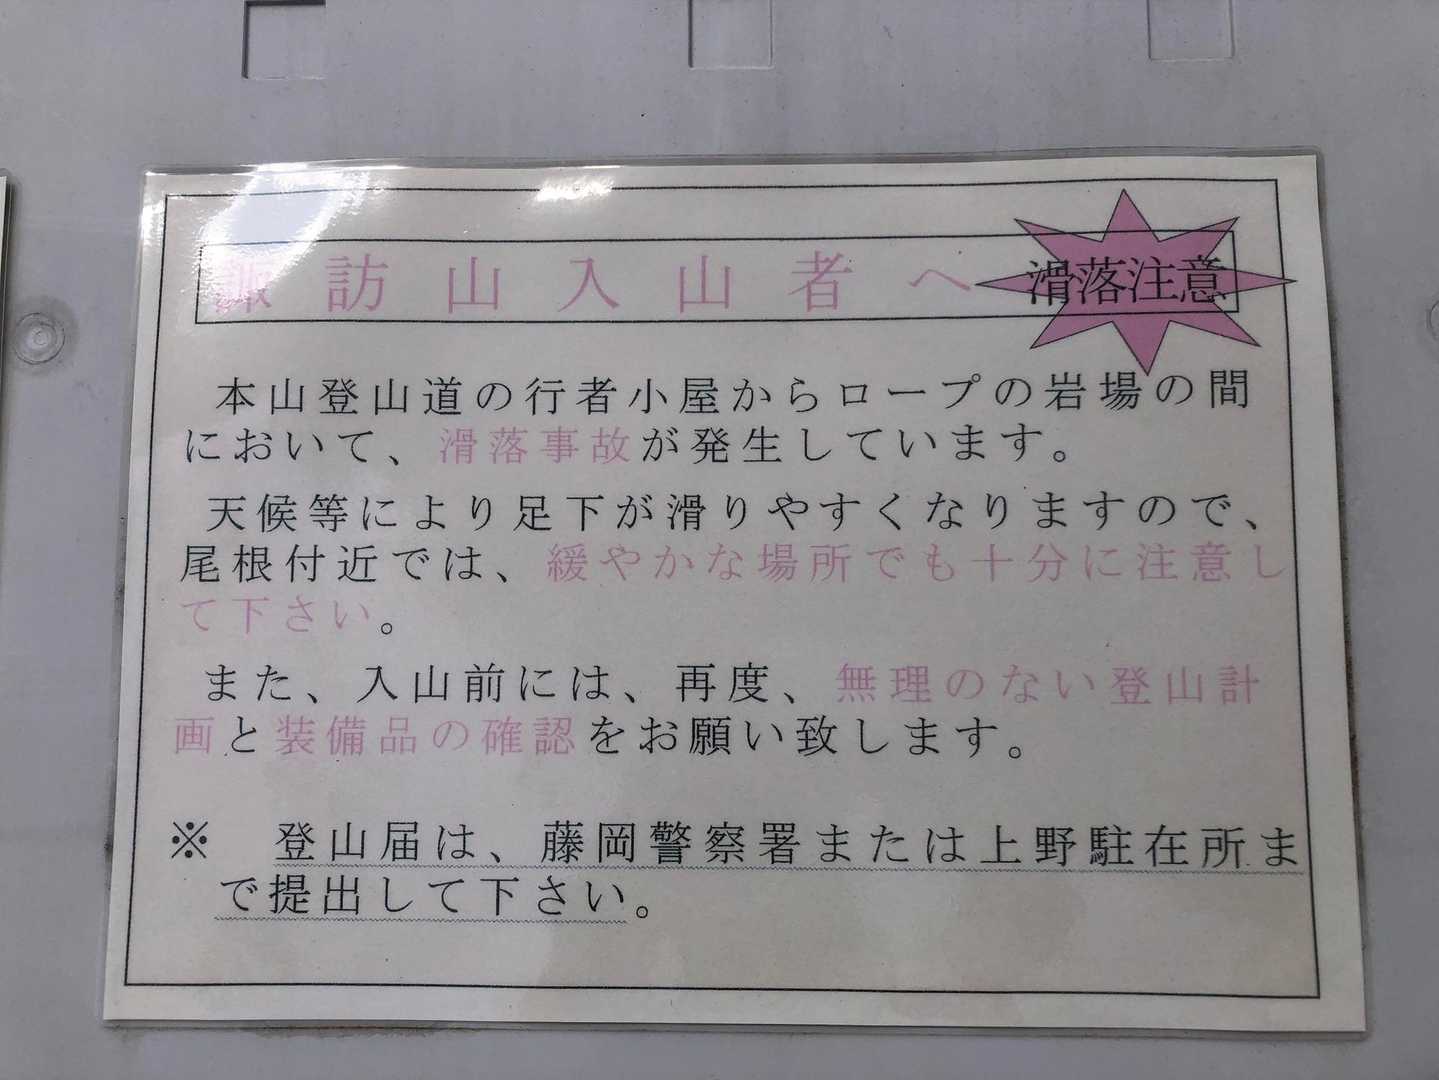 諏訪山入山者へ 滑落注意
本山登山道の行者小屋からロープの岩場の間
において、滑落事故が発生しています。
天候等により足下が滑りやすくなりますので、
尾根付近では、緩やかな場所でも十分に注意し
て下さい。
また、入山前には、再度、無理のない登山計
画と装備品の確認をお願い致します。
※ 登山届は、藤岡警察署または上野駐在所ま
で提出して下さい。